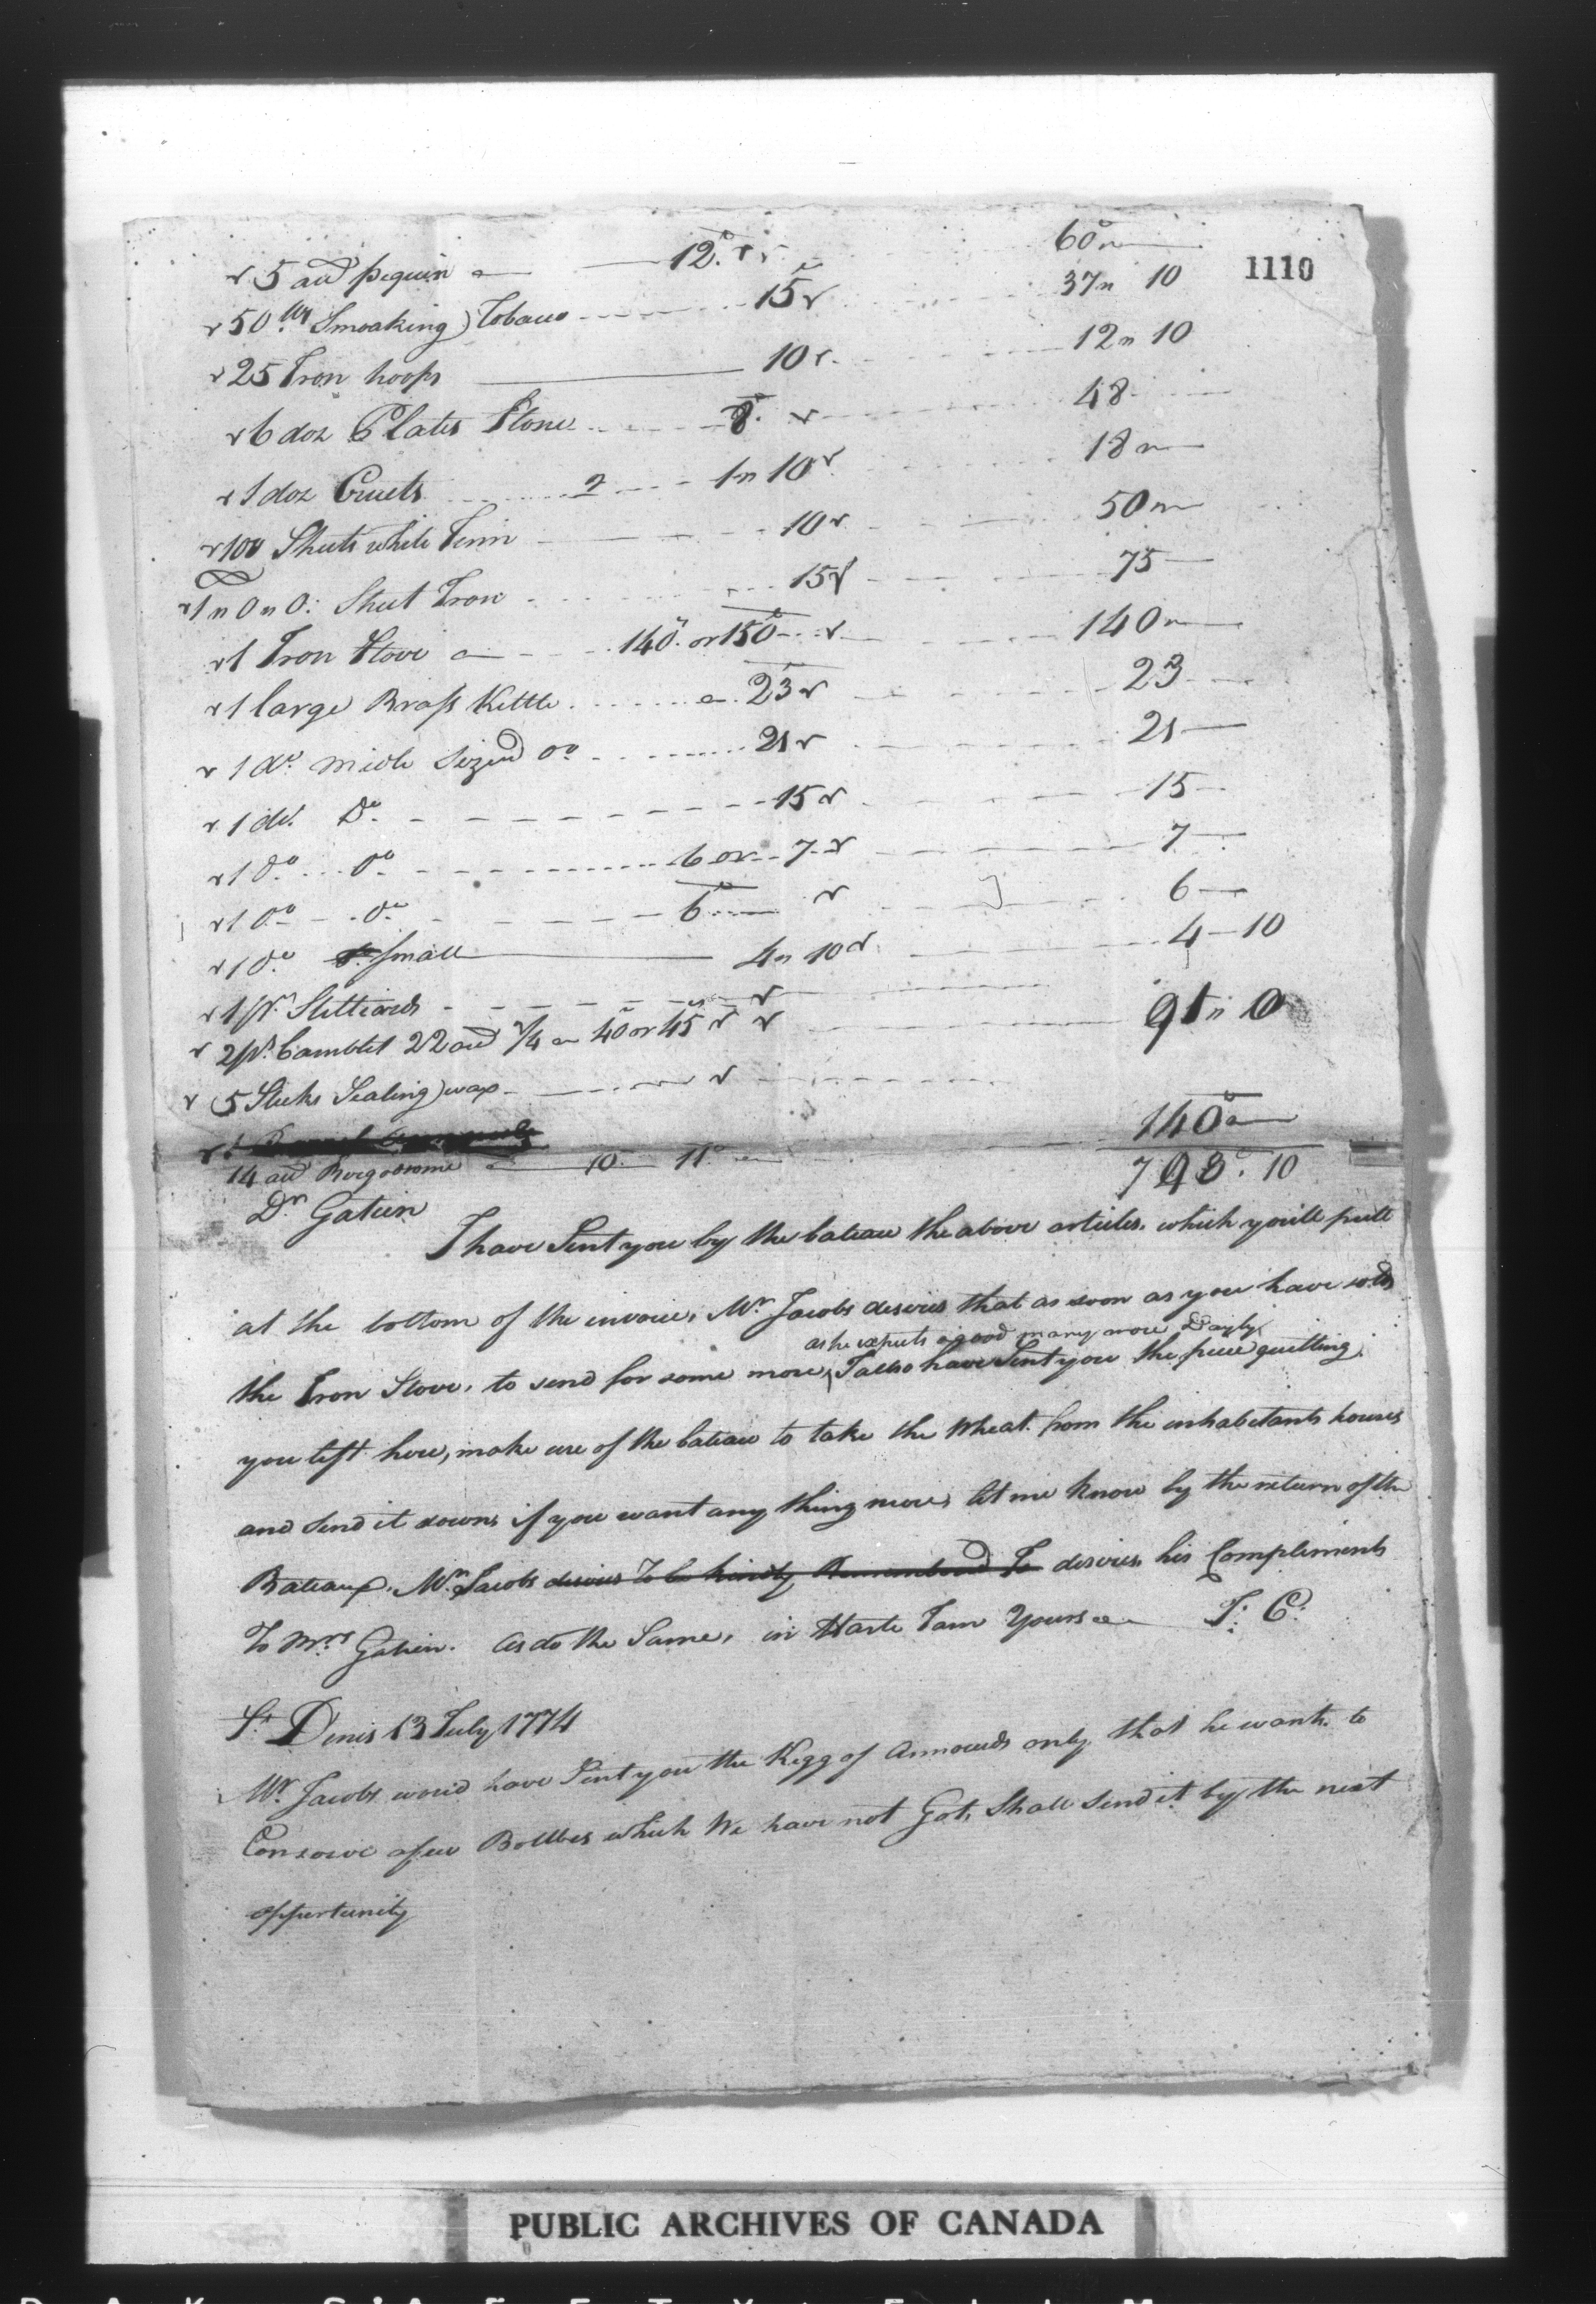 5 aud pequin a 12" 60"
1110
50 lbs Smoaking Tobaco 15 37 " 10
25 Iron hoops 10 12 " 10
6 doz Plates Stone 8 48
1 doz Cruets 2 1 " 10 18 "
100 Sheets white Tinn 10 50 "
1 " 0 " 0: Sheet Iron 15 75
1 Iron Stove a 140" or 150 140 "
1 large Brass Kettle a 23 23
1 do midle Sized do 21 21
1 do. Do 15 15
1 do do 6 or 7 7
1 do do 6 6
1 do small 4 " 10 4 - 10
1 pr Stilliards
2 ps Camblet 22 aud ¼ a 40 or 45 91 " 0
5 Sticks Sealing wax
140
14 aud a 10 11 793. 10
Dr Gatien
I have Sent you by the bateau the above articles. which youill putt
at the bottom of the invoice, Mr Jacobs desires that as soon as you have sold
as he expects a good many more Dayly
the Iron Stove, to send for some more, I allso have Sent you the piece quilting
you left here, make use of the bateau to take the Wheat from the inhabitants houses
and Send it down, if you want any thing more, let me know by the return of the
Bateaux. Mr Jacobs desires To be kindly Remembered To desires his Compliments
To Mrs Gatien. as do the Same, in Haste I am Yours &c J: C:
St Denis 13 July 1774
Mr. Jacobs would have Sent you the Kegg of only that he wants to
Conserve a few Bottles which We have not Got, Shall send it by the next
oppertunity
PUBLIC ARCHIVES OF CANADA